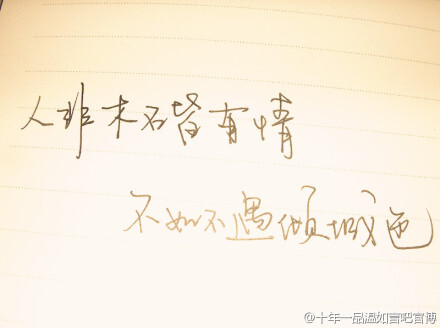 人非木石皆有情
不如不遇倾城色
@十年一品温如言吧官博